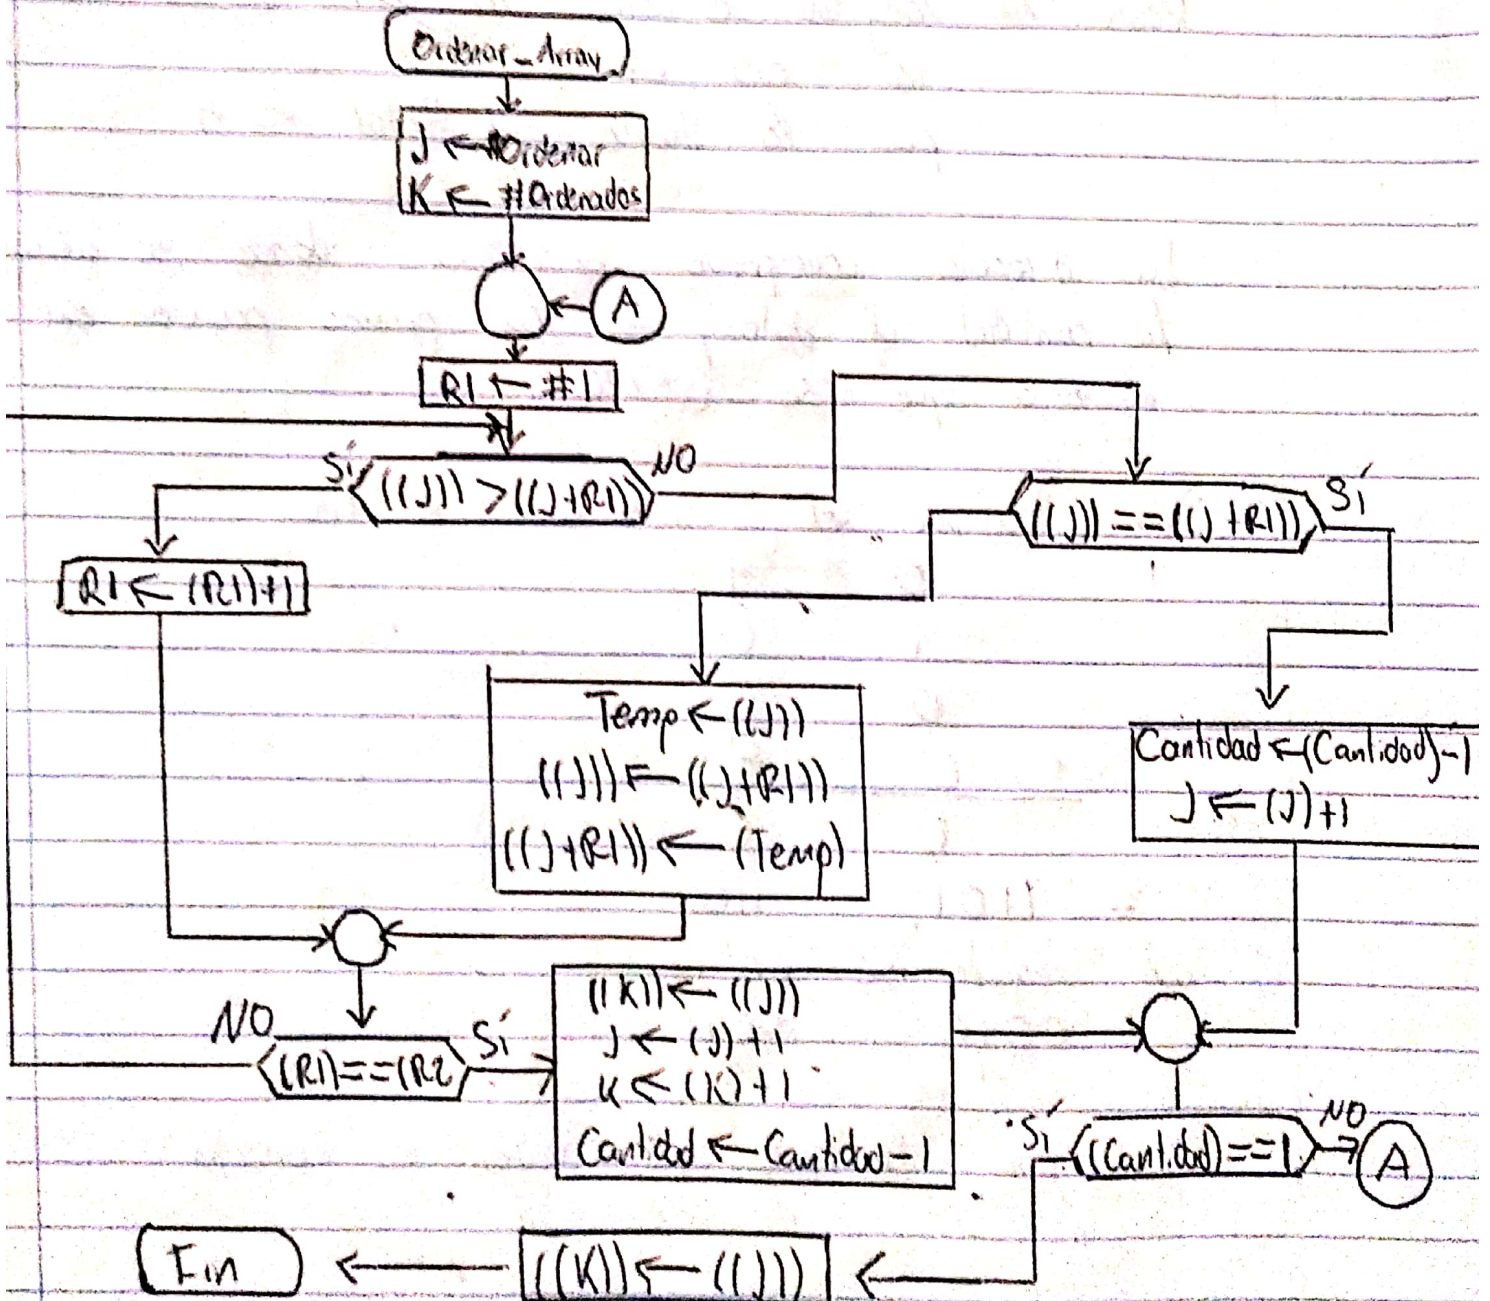 Ordenar_Array
J ← #Ordenar
K ← #Ordenados
A
R1 ← #1
Sí ((J)) > ((J+R1)) NO
((J)) == ((J+R1)) Sí
R1 ← (R1)+1
Temp ← ((J))
((J)) ← ((J+R1))
((J+R1)) ← (Temp)
Cantidad ← (Cantidad)-1
J ← (J)+1
NO (R1)==(R2 Sí
((K)) ← ((J))
J ← (J)+1
K ← (K)+1
Cantidad ← Cantidad-1
Sí ((Cantidad)==1 NO
A
((K)) ← ((J))
Fin